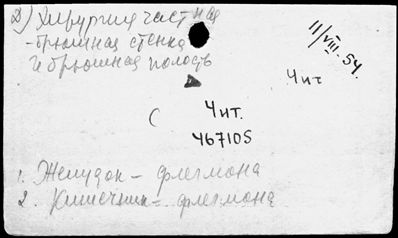 Д) Хирургия частная
- брюшная стенка
и брюшная полость
11/VIII-54.
Чит
С
Чит.
46710S
1. Желудок - флегмона
2. Кишечник - флегмона